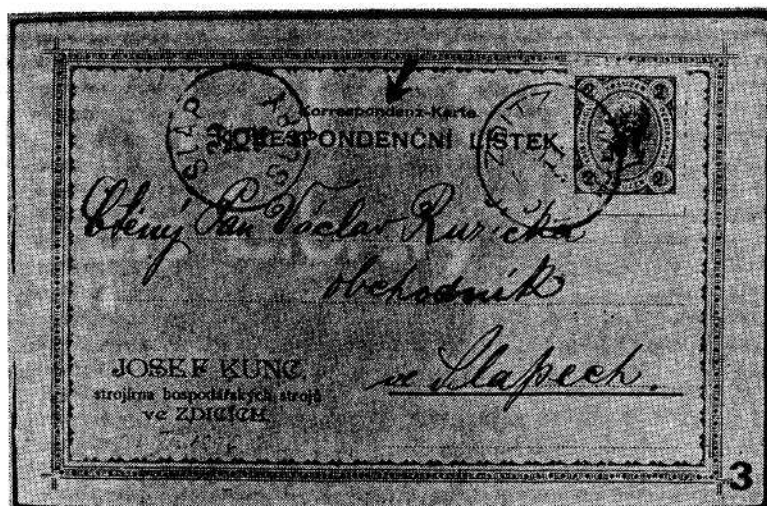 Korrespondenz-Karte.
KORESPONDENČNÍ LÍSTEK
2 2
2 2
Ctěný Pan Václav Ružička
obchodník
ve Slapech.
JOSEF KUNC,
strojírna hospodářských strojů
ve ZDICÍCH.
3